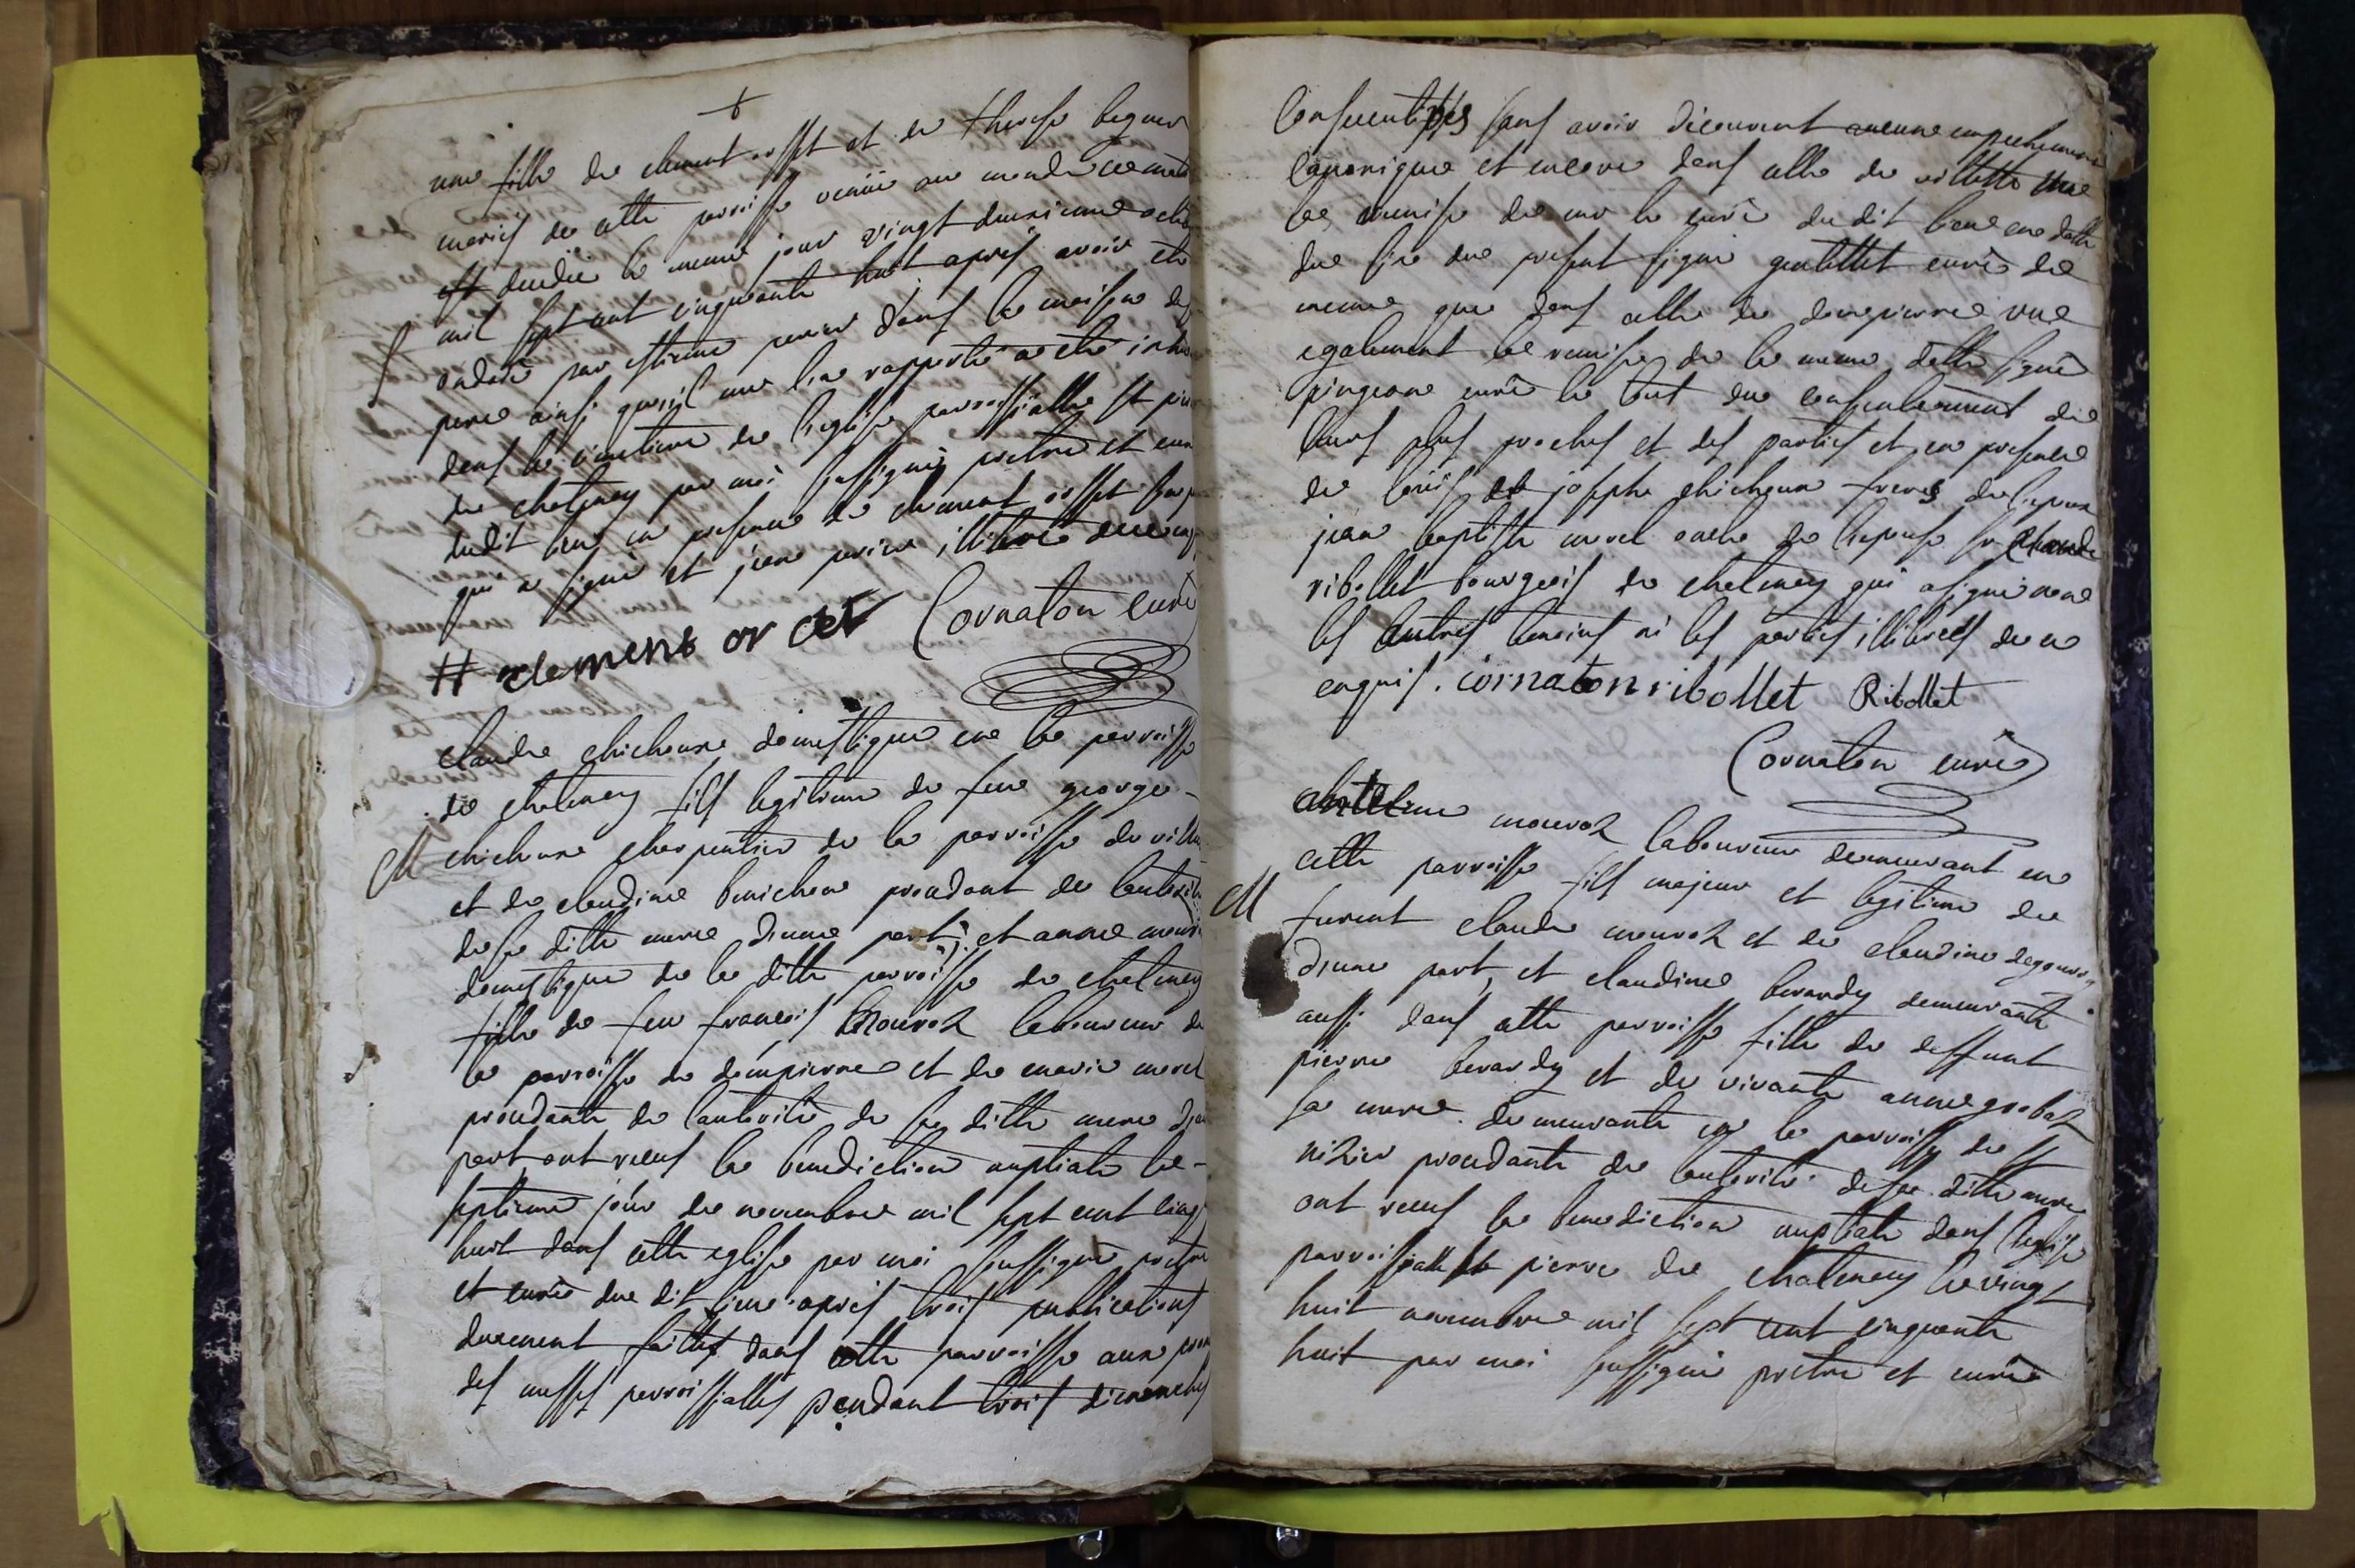 une fille de clement orset et de therese beguet
mariés de cette parroisse venüe au monde ce matin
est decedée le meme jour vingt deuxieme octobre
mil sept cent cinquante huit apres avoir eté
ondoiée par estienne perier dans la maison de
pere ainsi quoil me l'a rapporté a eté inhu
dans le cimetiere de l'eglise parroissialle st pierre
de chatenay par moi soussigné pretre et curé
dudit lieu en presence de clement orset son pere
qui a signé et jean perier illiteré de ce enquis
S
# clement or cet Cornaton curé
claude chichoux domestique en la parroisse
de chatenay fils legitime de feu george
M
chichoux charpentier de la parroisse de villette
et de claudine benichon procedant de l'autorité
de sa ditte mere d'une part, et anne mouroz
domestique de la ditte parroisse de chatenay
fille de feu francois Mouroz laboureur de
la parroisse de dompierre et de marie morel
procedante de l'autorité de sa ditte mere d'au
part, ont receus la benediction nuptiale le
septieme jour de novembre mil sept cent cinq
huit dans cette eglise par moi soussigné pretre
et curé du dit lieu apres trois publications
duement faittes dans cette parroisse aux prones
des messes parroissialles pendant trois dimanches
consecutifs sans avoir decouvert aucun empechement
canonique et encore dans celle de villette vue
la remise de mr le curé du dit lieu en datte
du six du present signé gentillet curé de
meme que dans celle de dompierre vue
egalement la remise de la meme datte signé
pingeon curé le tout du consentement de
leurs plus proches et des parties et en presence
de louis et joseph chichoux freres de l'epoux
jean baptiste morel oncle de l'epouse sr claude
ribollet bourgeois de chatenay qui a signé non
les autres temoins ni les parties illiterées de ce
enquis. cornaton ribollet Ribollet
Cornaton curé
anthelme mouroz laboureur demeurant en
cette parroisse fils majeur et legitime de
M
furent claude mouroz et de claudine
d'une part, et claudine berardy demeurante
aussi dans cette parroisse fille de deffunt
pierre berardy et de vivante anne grobaz
sa mere demeurante en la parroisse de st
nizier procedante de l'autorité de sa ditte mere
ont receus la benediction nuptiale dans l'eglise
parroissialle st pierre de chatenay le vingt
huit novembre mil sept cent cinquante
huit par moi soussigné pretre et curé